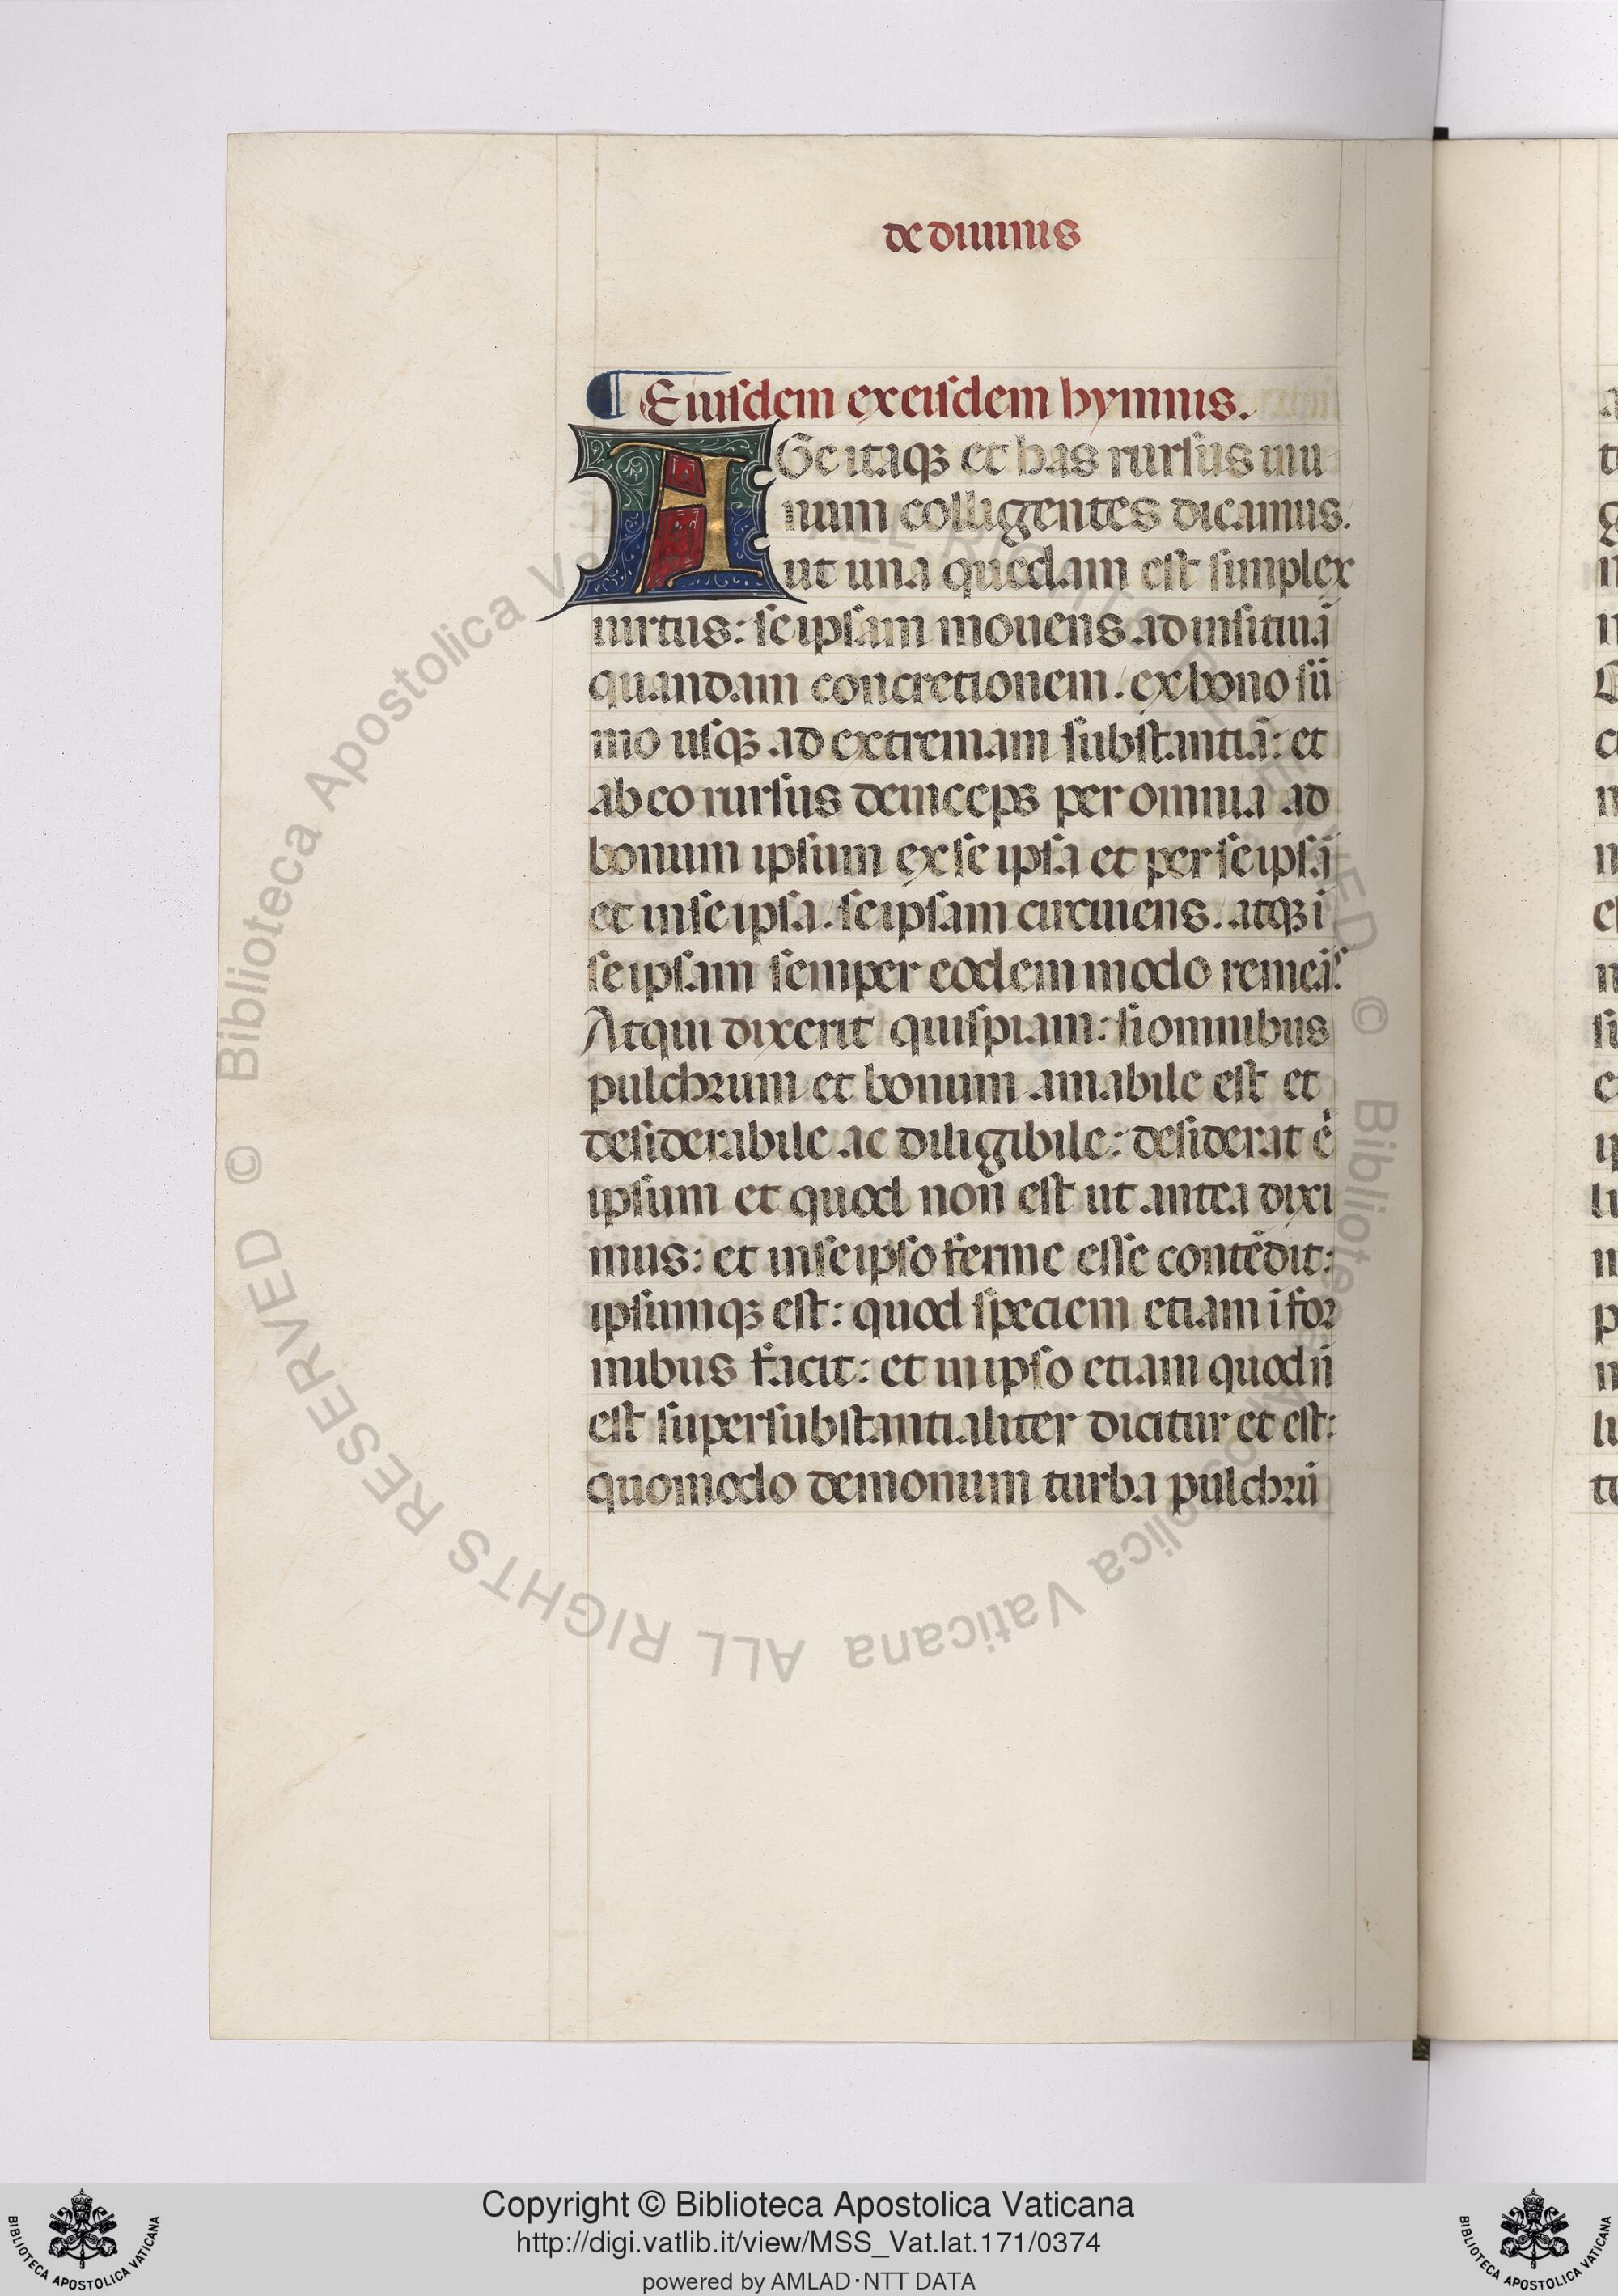 de diuinis
¶ Eiusdem ex eisdem hymnis.
AGe itaqꝫ et has rursus in u
num colligentes dicamus.
ut una quedam est simplex
uirtus: se ipsam mouens ad insitiuā
quandam concretionem. ex bono sū
mo usqꝫ ad extremam substantiā: et
ab eo rursus deinceps per omnia ad
bonum ipsum ex se ipsa et per se ipsā
et in se ipsa. se ipsam circinens. atqꝫ ī
se ipsam semper eodem modo remeās.
Atqui dixerit quispiam: si omnibus
pulchrum et bonum amabile est et
desiderabile ac diligibile: desiderat .n.
ipsum et quod non est ut antea dixi
mus: et in se ipso ferme esse contēdit:
ipsumqꝫ est: quod speciem etiam ī for
mibus facit: et in ipso etiam quod n̄
est supersubstantialiter dicitur et est:
quomodo demonum turba pulchrū
© Biblioteca Apostolica Vaticana ALL RIGHTS RESERVED
Copyright © Biblioteca Apostolica Vaticana
http://digi.vatlib.it/view/MSS_Vat.lat.171/0374
powered by AMLAD·NTT DATA
BIBLIOTECA APOSTOLICA VATICANA
BIBLIOTECA APOSTOLICA VATICANA